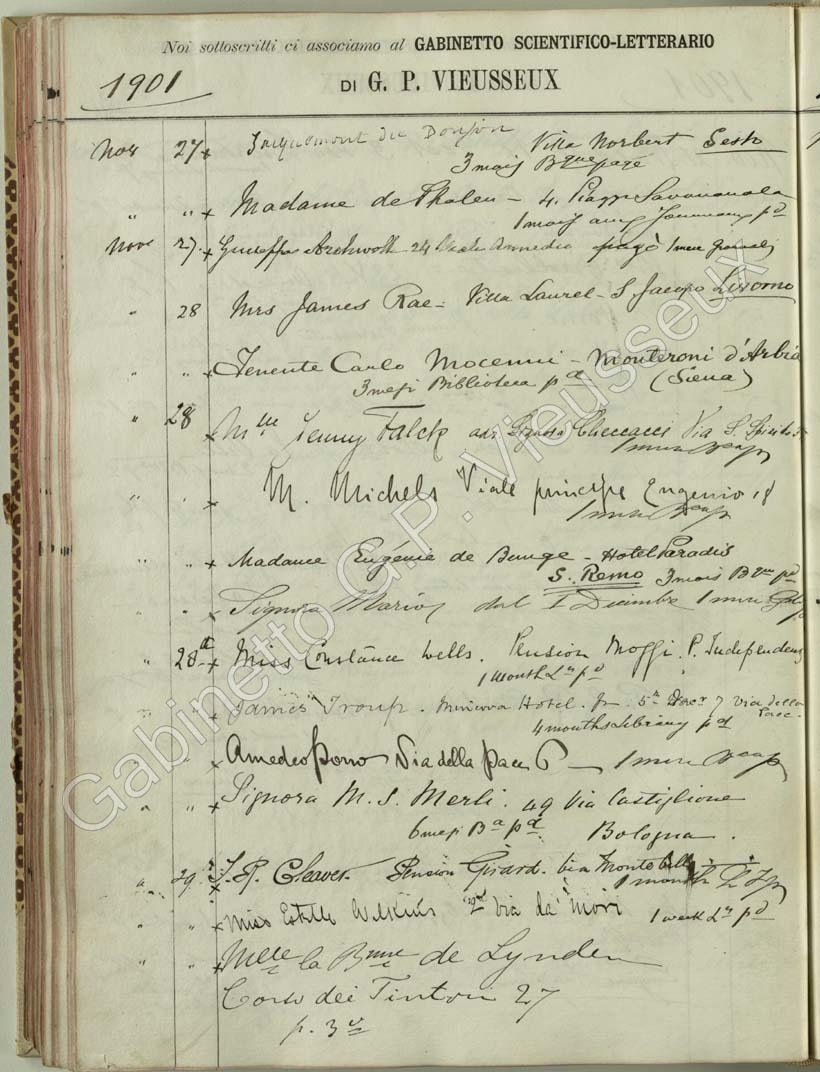 Noi sottoscritti ci associamo al GABINETTO SCIENTIFICO-LETTERARIO
1901
DI G. P. VIEUSSEUX
Nov 27 x Jacquemont du Donjon Villa Norbert Sesto
3 mois Bque payé
" " x Madame de Thalen - 4. Piazza Savonarola
1 mois
Nove 27. x Giuseppe 24 pagò 1 mese
" 28 Mrs James Rae - Villa Laurel - S Jacopo Livorno
" " x Tenente Carlo Mocenni - Monteroni d'Arbia
3 mesi Biblioteca pd (Siena)
" 28 x Mlle Jenny Falck Signora Checcacci Via S.
1 mese
" " x M. Michels Viale principe Eugenio 18
1 mese
" " x Madame Eugénie de Bunge - Hotel Paradis
S. Remo 3 mois Bque pd
" x Signora Marios dal 1 Dicembre 1 mese
" 28 x Miss Constance Wells. Pension Moggi. P. Independenza
1 month pd
James Troup. Minerva Hotel. fr. 5th Decr 7 Via della
4 months Library pd
" x Amedeo Via della Pace 6 - 1 mese
" " x Signora M. S. Merli. 49 Via Castiglione
6 mesi Ba pd Bologna.
" 29 x J. R. Cleaver Pension Girard. Via Montebello
1 month
" " x Miss Estelle Wilkins Via da' Mori 1 week pd
" " x Melle la Bnne de Lynden
Corso dei Tintori 27
Gabinetto G.P. Vieusseux